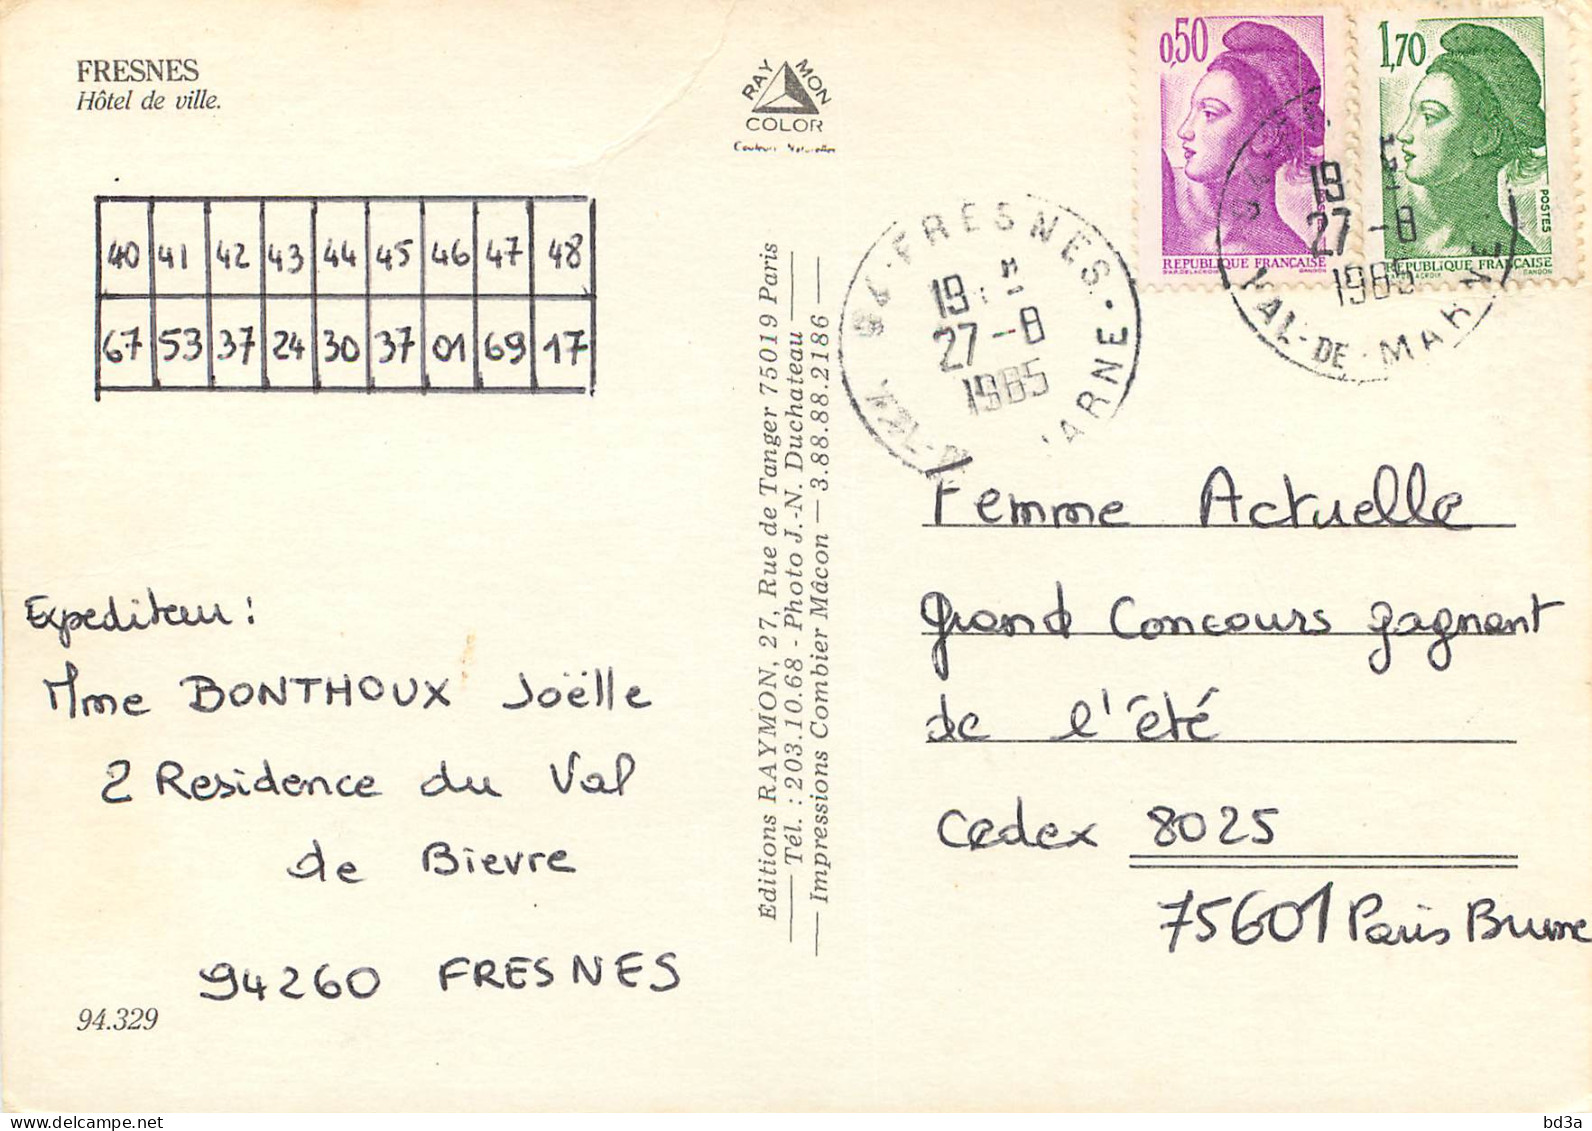 FRESNES
Hôtel de ville.
RAYMON
COLOR
Couleurs Naturelles
0,50
REPUBLIQUE FRANÇAISE
D'AP. DELACROIX GANDON
1,70
POSTES
REPUBLIQUE FRANÇAISE
D'AP. DELACROIX GANDON
94 - FRESNES
19 H
27 - 8
1985
VAL-DE-MARNE
19
27 - 8
1985
40 41 42 43 44 45 46 47 48
67 53 37 24 30 37 01 69 17
Editions RAYMON, 27, Rue de Tanger 75019 Paris
Tél. : 203.10.68 - Photo J.-N. Duchateau
Impressions Combier Mâcon — 3.88.88.2186
Femme Actuelle
grand Concours gagnant
de l'été
Cedex 8025
75601 Paris Brune
Expediteur :
Mme BONTHOUX Joëlle
2 Residence du Val
de Bievre
94260 FRESNES
94.329
bd3a